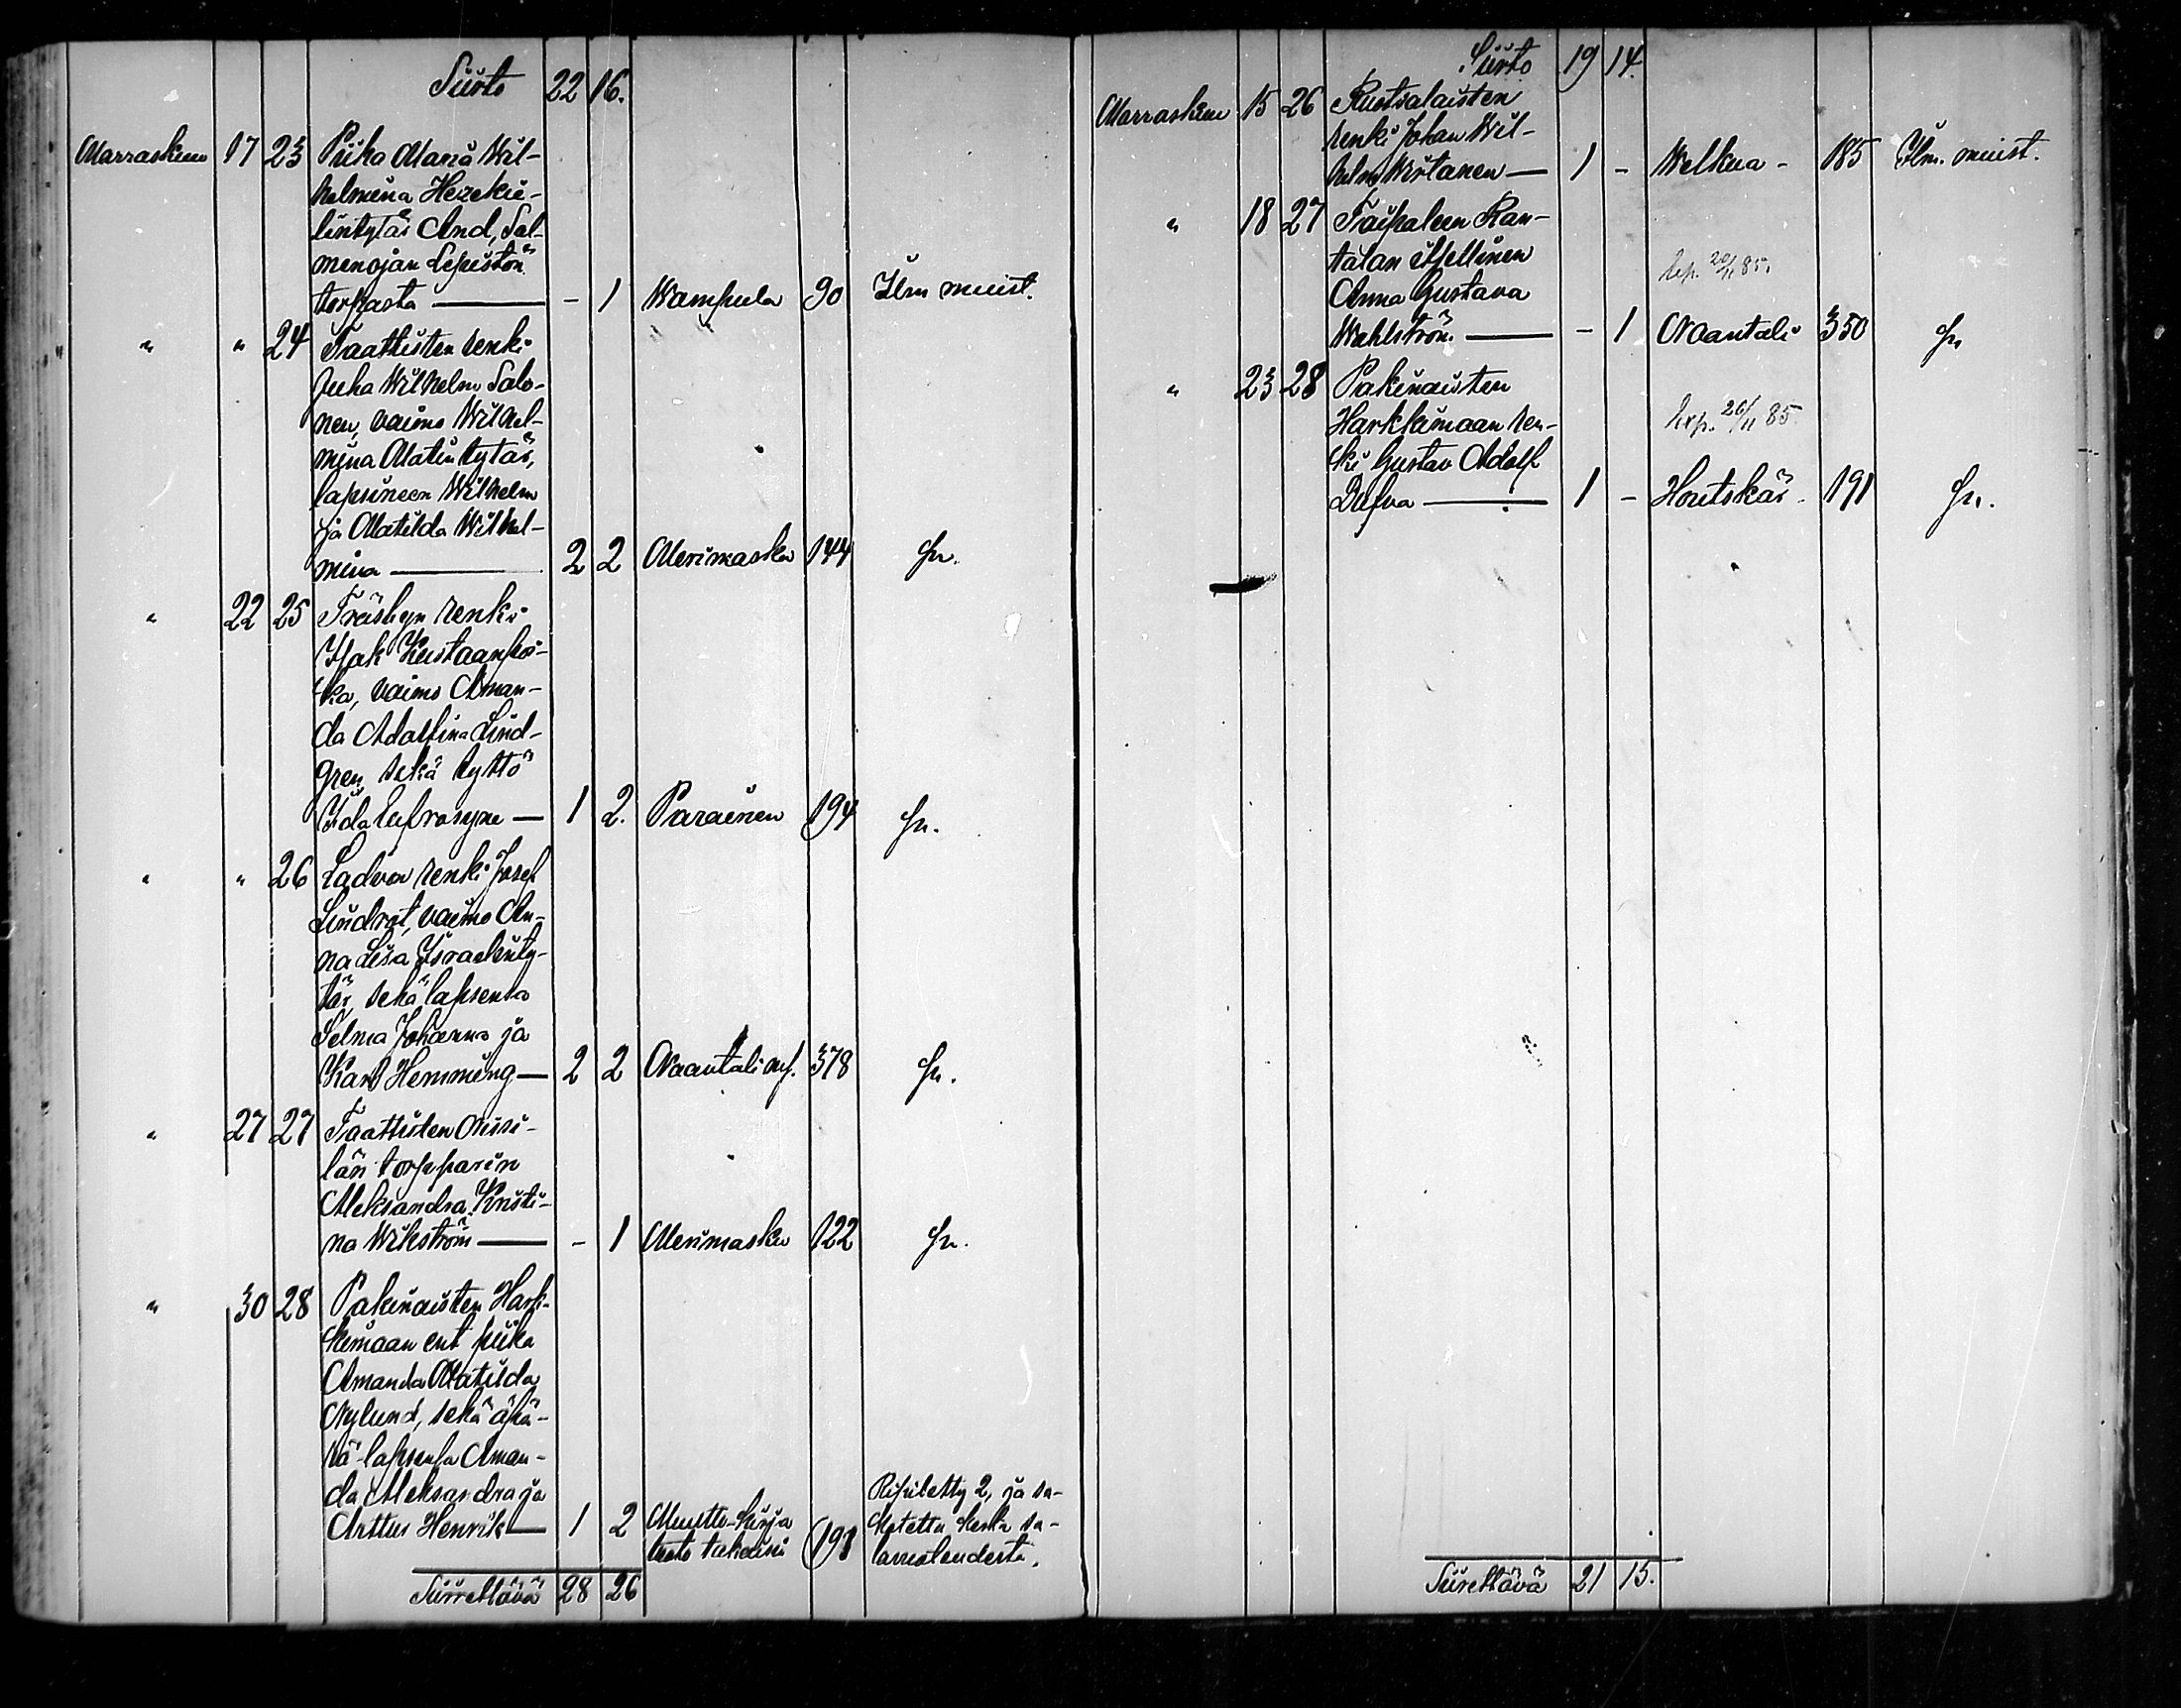 Siirto 22 16.
Marraskuu 17 23 Piika Maria Wil-
helmina Hezekie-
lintytär And, Sal-
menojan Lepistön
torpasta — - 1 Wampula 90 Ilm muist.
" " 24 Taattisten renki
Juha Wilhelm Salo-
nen, vaimo Wilhel-
mina Matintytär,
lapsineen Wilhelm
ja Matilda Wilhel-
mina — 2 2 Merimasku 144 sn.
" 22 25 renki
Isak Kustaanpoi-
ka, vaimo Aman-
da Adolfina Lind-
gren, sekä tyttö
Ida Eufrosyne — 1 2. Parainen 194 sn.
" " 26 Ladvon renki Josef
Lindrot, vaimo An-
na Lisa Israelinty-
tär, sekä lapsensa
Selma Johanna ja
Karl Hemming — 2 2 Naantali 378 sn.
" 27 27 Taattisten
län torpparin
Aleksandra Kristi-
na Wikström — - 1 Merimasku 122 sn.
" 30 28 Pakinaisten Hark-
kimaan ent piika
Amanda Matilda
Nylund, sekä äpä-
rä lapsensa Aman-
da Aleksandra ja Ripitetty 2, ja sa-
Arttur Henrik — 1 2 Muutto-kirja 198
Siirrettävä 28 26
Siirto 19 14.
Marraskuu 15 26 Ruotsalaisten
renki Johan Wil-
helm Wirtanen — 1 - Welkua - 185 Ilm. muist.
" 18 27 Taipaleen Ran-
talan itsellinen
Anna Gustava 20/11 85.
Wahlström. — - 1 Naantali 350 sn
" 23 28 Pakinaisten
Harkkimaan ren- 26/11 85.
ki Gustav Adolf
Dufva — 1 - Houtskär. 191 sn.
Siirettävä 21 15.